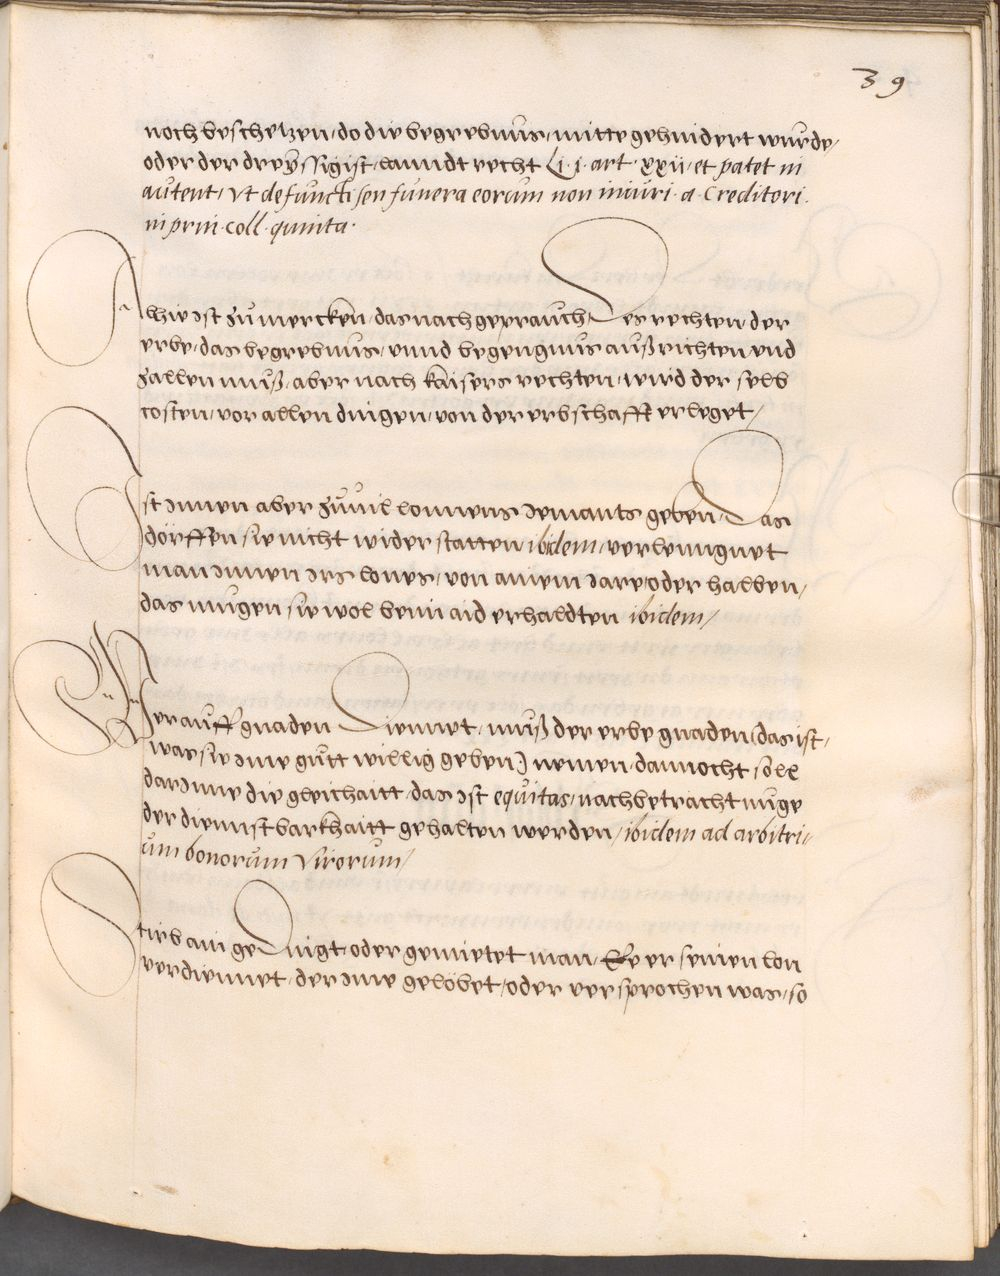 39
noch beschetzen, do die begrebnus, mitte gehindert wurde,
oder der dreyssigist, lanndt recht Li. j. art. xxii, et patet in
autent, Vt defuncti seu funera eorum non iniuri. a. Creditori.
in prin. coll. quinta.
Alhie ist zu mercken, das nach geprauch Des rechten, der
erbe, das begrebnus, unnd begengnus außrichten und
zallen muß, aber nach kaisers rechten, wird der selb
costen, vor allen dingen, von der erbschafft erleget,
Ist innen aber zuuil lonnens iemants geben, Das
dörffen sie nicht widerstatten, ibidem, verleungnet
man innen irs lones, von ainem iare, oder halben,
das mugen sie wol beim aid erhaldten ibidem,
Wer auff gnaden Diennet, muß der erbe gnaden (das ist,
was sie ime gutt willig geben) nemen, dannocht soll
dar inne die gleichaitt, das ist equitas, nach betrachtunge
der diennstbarkhaitt gehalten werden, ibidem ad arbitri=
um bonorum Virorum,
Stirb ain geDingt, oder gemietet man, Ee er seinen lon
verdiennet, der ime gelöbet, oder versprochen was, so